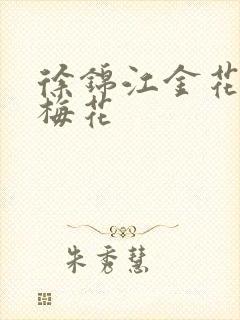 徐锦江金花
梅花
朱秀慧